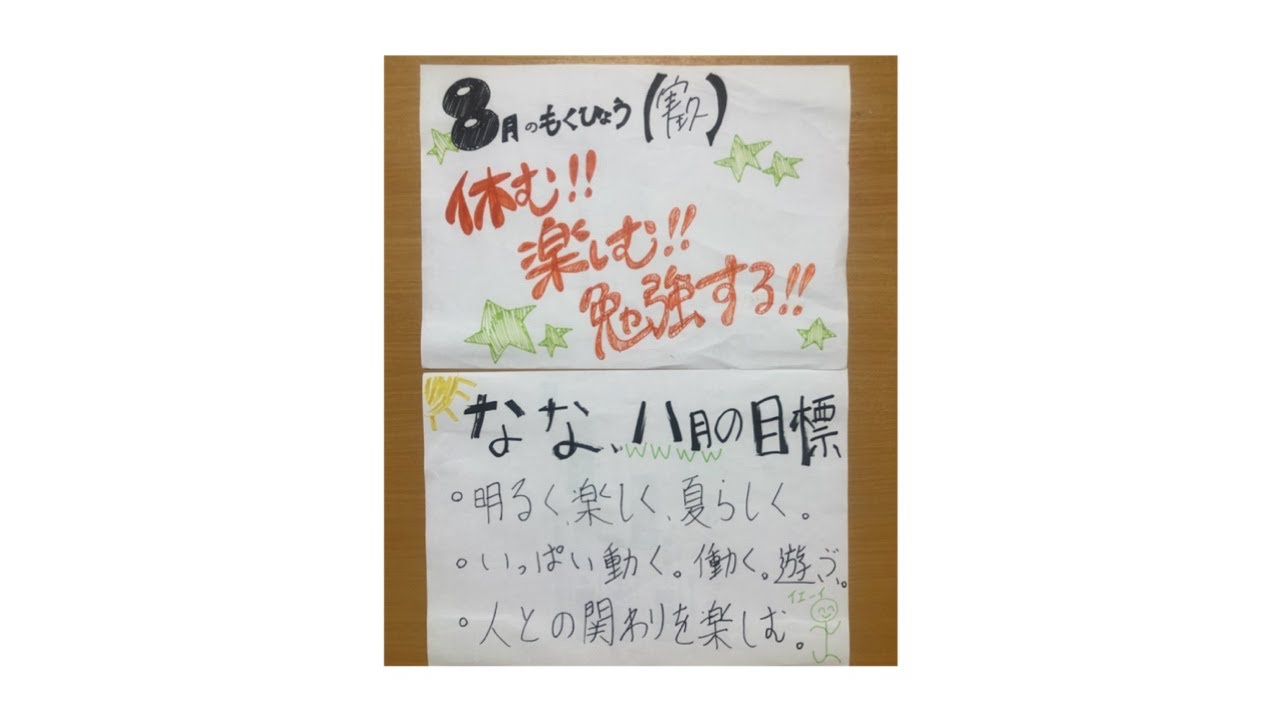 8月のもくひょう
休む!!
楽しむ!!
勉強する!!
なな、八月の目標
wwww
。明るく、楽しく、夏らしく。
。いっぱい動く。働く。遊ぶ。
イエーイ
。人との関わりを楽しむ。